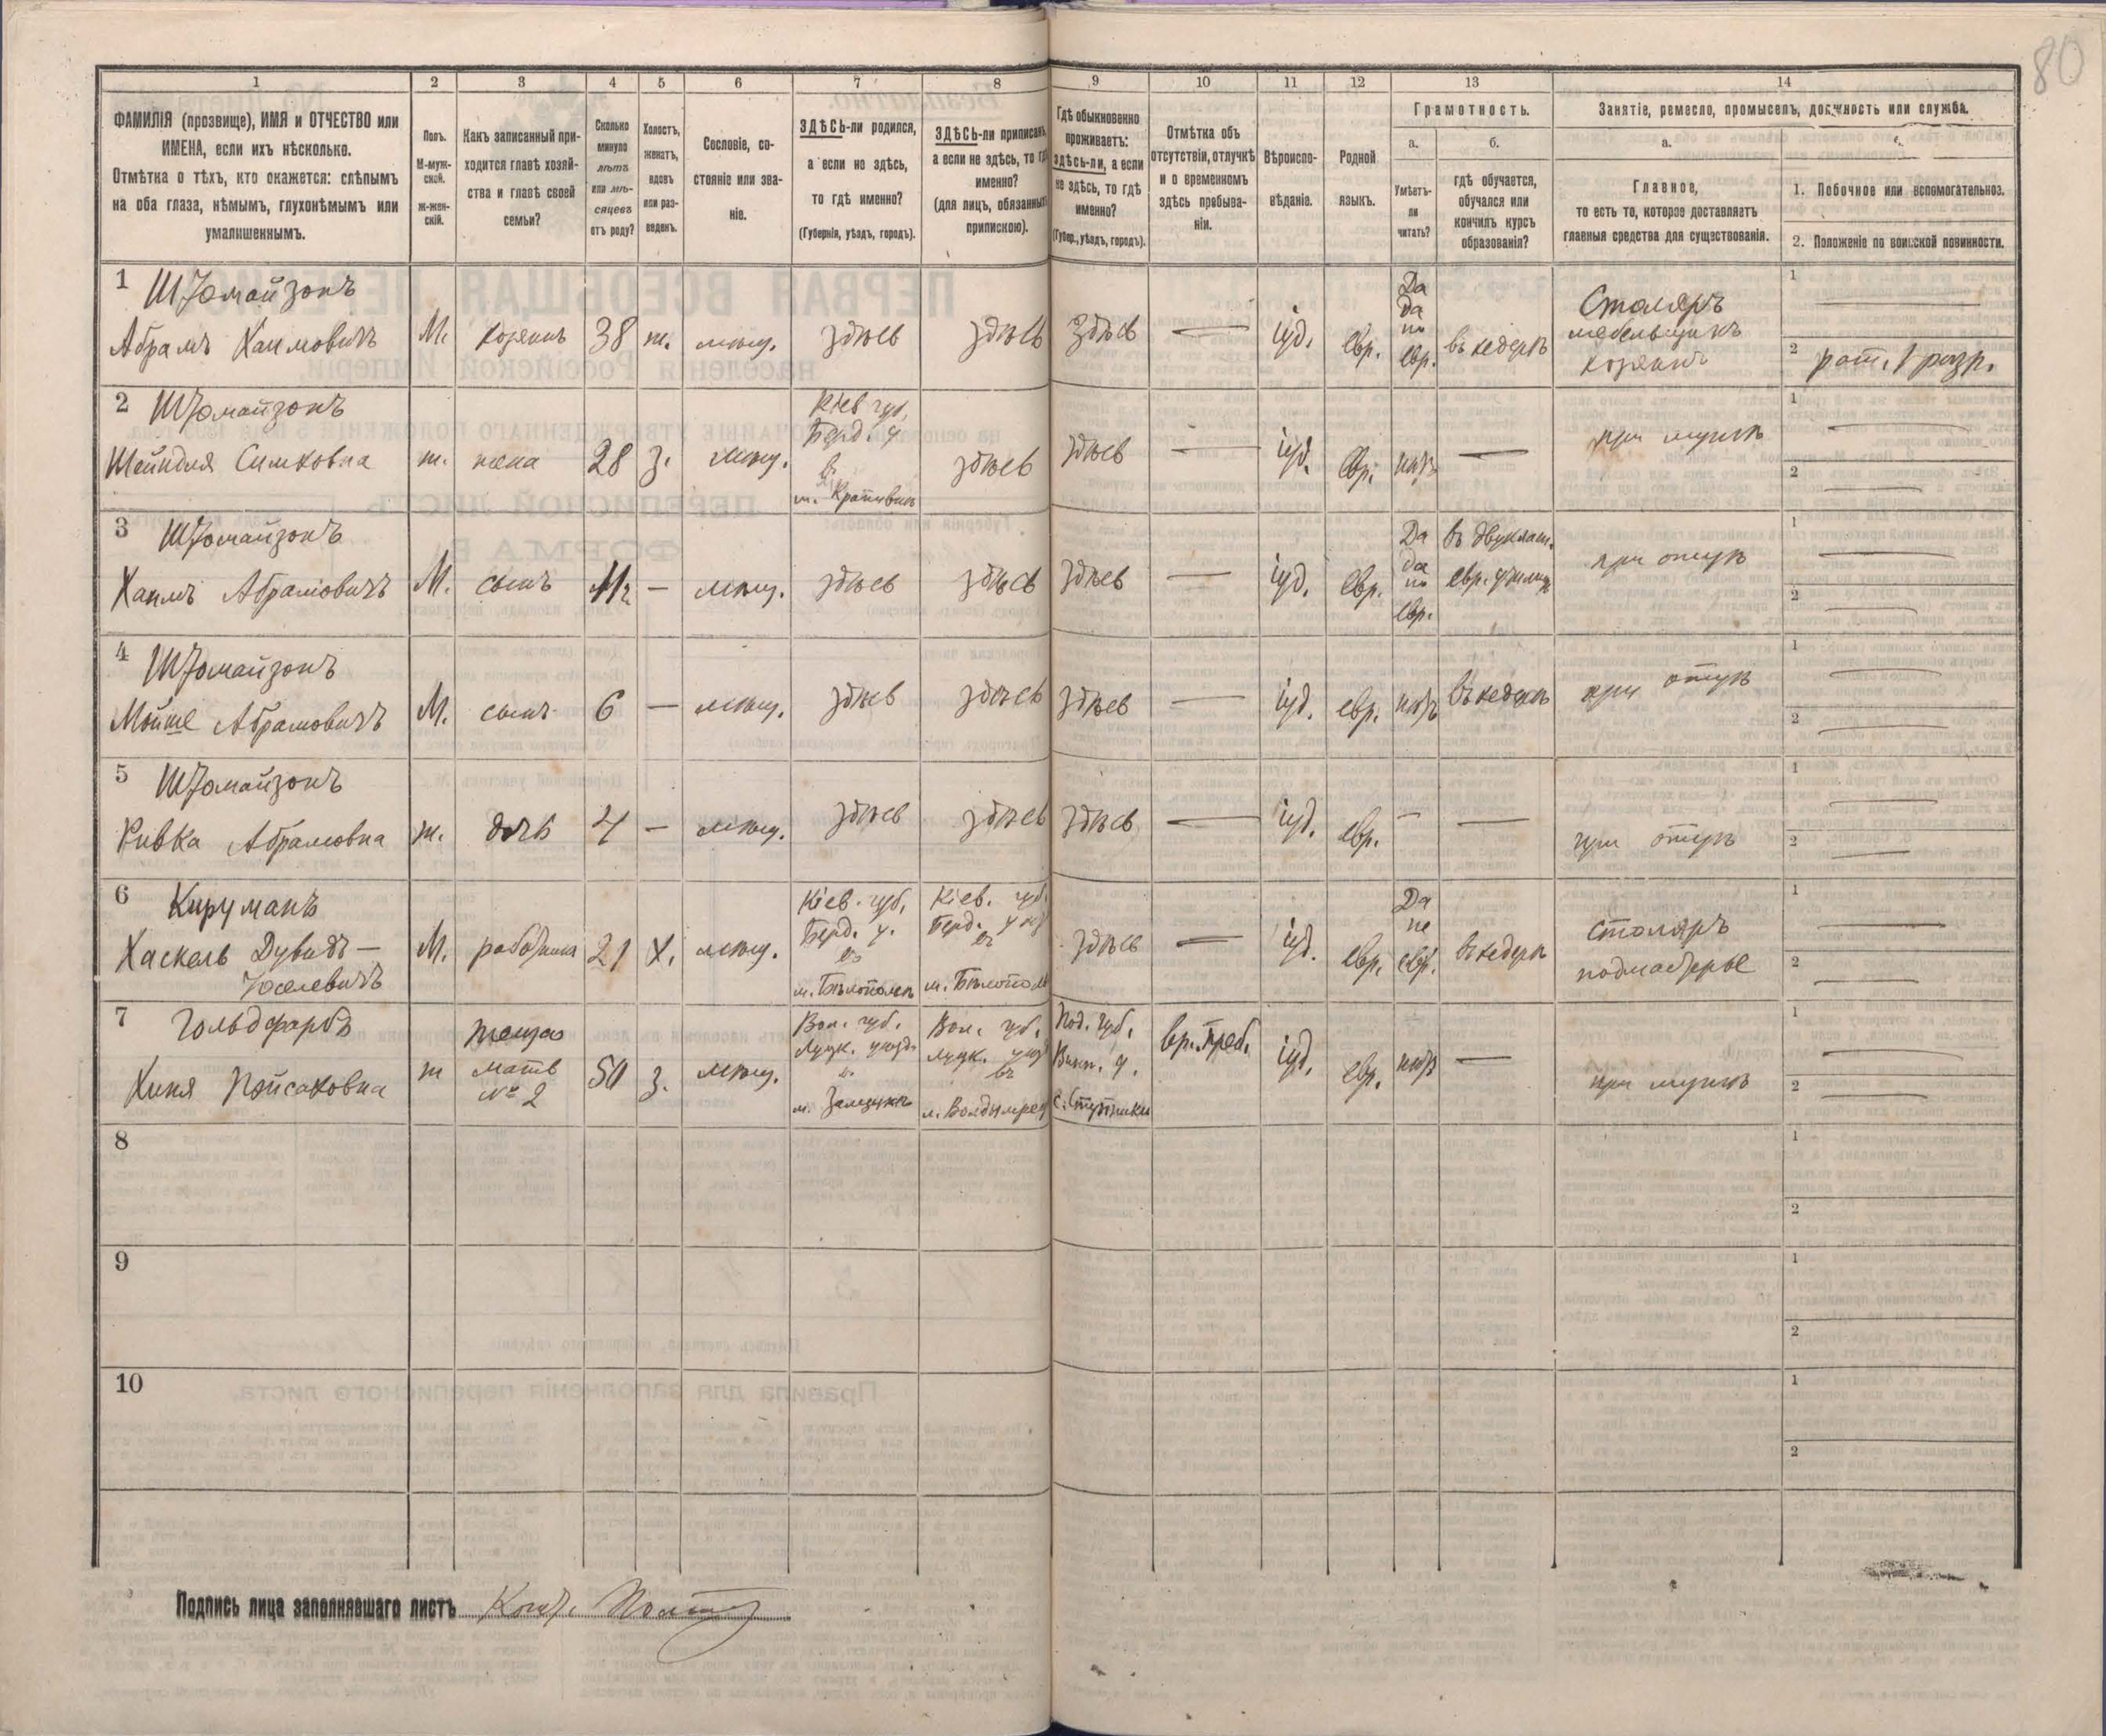 80
1 2 3 4 5 6 7 8 9 10 11 12 13 14
ФАМИЛІЯ (прозвище), ИМЯ и ОТЧЕСТВО или
ИМЕНА, если ихъ нѣсколько.
Отмѣтка о тѣхъ, кто окажется: слѣпымъ
на оба глаза, нѣмымъ, глухонѣмымъ или
умалишеннымъ.
Полъ.
М-муж-
ской.
ж-жен-
скій.
Какъ записанный при-
ходится главѣ хозяй-
ства и главѣ своей
семьи?
Сколько
минуло
лѣтъ
или мѣ-
сяцевъ
отъ роду?
Холостъ,
женатъ,
вдовъ
или раз-
веденъ.
Сословіе, со-
стояніе или зва-
ніе.
ЗДѢСЬ-ли родился,
а если не здѣсь,
то гдѣ именно?
(Губернія, уѣздъ, городъ).
ЗДѢСЬ-ли приписанъ,
а если не здѣсь, то гдѣ
именно?
(для лицъ, обязанныхъ
припискою).
Гдѣ обыкновенно
проживаетъ:
здѣсь-ли, а если
не здѣсь, то гдѣ
именно?
(Губер., уѣздъ, городъ).
Отмѣтка объ
отсутствіи, отлучкѣ
и о временномъ
здѣсь пребыва-
ніи.
Вѣроиспо-
вѣданіе.
Родной
языкъ.
Грамотность.
а.
Умѣетъ-
ли
читать?
б.
гдѣ обучается,
обучался или
кончилъ курсъ
образованія?
Занятіе, ремесло, промыселъ, должность или служба.
а.
Главное,
то есть то, которое доставляетъ
главныя средства для существованія.
1. Побочное или вспомогательное.
2. Положеніе по воинской повинности.
1 Штомайзонъ
Абрамъ Хаимовичъ М. хозяинъ 38 ж. мѣщ. здѣсь здѣсь здѣсь — іуд. евр.
Да
да
по
евр.
въ хедерѣ
Столяръ
мебельщикъ
хозяинъ
1 —
2 рат. 1 разр.
2 Штомайзонъ
Шейндля Симховна ж. жена 28 з. мѣщ.
Кіев. губ.
Берд. у.
въ
здѣсь здѣсь — іуд. евр. нѣтъ —
при мужѣ
1 —
2 —
3 Штомайзонъ
Хаимъ Абрамовичъ М. сынъ — мѣщ. здѣсь здѣсь здѣсь — іуд. евр.
Да
да
по
евр.
въ двуклас.
евр. училищ.
при отцѣ
1 —
2 —
4 Штомайзонъ
Мойше Абрамовичъ М. сынъ 6 — мѣщ. здѣсь здѣсь здѣсь — іуд. евр. нѣтъ въ хедерѣ
при отцѣ
1 —
2 —
5 Штомайзонъ
Ривка Абрамовна ж. дочь 4 — мѣщ. здѣсь здѣсь здѣсь — іуд. евр. — —
при отцѣ
1 —
2 —
6 Кируманъ
Хаскель Дувидъ-
Іоселевичъ
М. работникъ 21 х. мѣщ.
Кіев. губ.
Берд. у.
въ
м. Бѣлополье
Кіев. губ.
Берд. уѣзд.
въ
м. Бѣлополье
здѣсь — іуд. евр.
Да
по
евр.
въ хедерѣ
столяръ
подмастерье
1 —
2 —
7 Гольдфарбъ
Хиня Пейсаховна ж
теща
мать
№ 2
50 з. мѣщ.
Вол. губ.
Луцк. уѣзд.
Вол. губ.
Луцк. уѣзд.
въ
Под. губ.
Винн. у.
вр. преб. іуд. евр. нѣтъ —
при мужѣ
1 —
2 —
8
1
2
9
1
2
10
1
2
Подпись лица заполнявшаго листъ